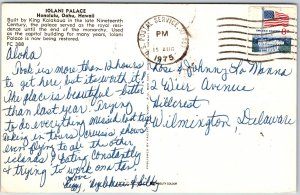 IOLANI PALACE
Honolulu, Oahu, Hawaii
Built by King Kalakaua in the late Nineteenth
Century, the palace served as the royal residence
until the end of the monarchy. Used
as the capitol building for many years, Iolani
Palace is now being restored.
FC 368
U.S. POSTAL SERVICE
PM
15 AUG
1975
Aloha
Took us more than 12 hours to
get here, but its worth it!
The place is beautiful, better
than last year. Trying
to do everything missed last trip
Taking in tours, cruises, shows
even flying to all the other
islands. Eating constantly
& trying to work on tan.
Love,
& Bill
& Johnny La Manna
2 Weir Avenue
Hillcrest
Wilmington, Delaware